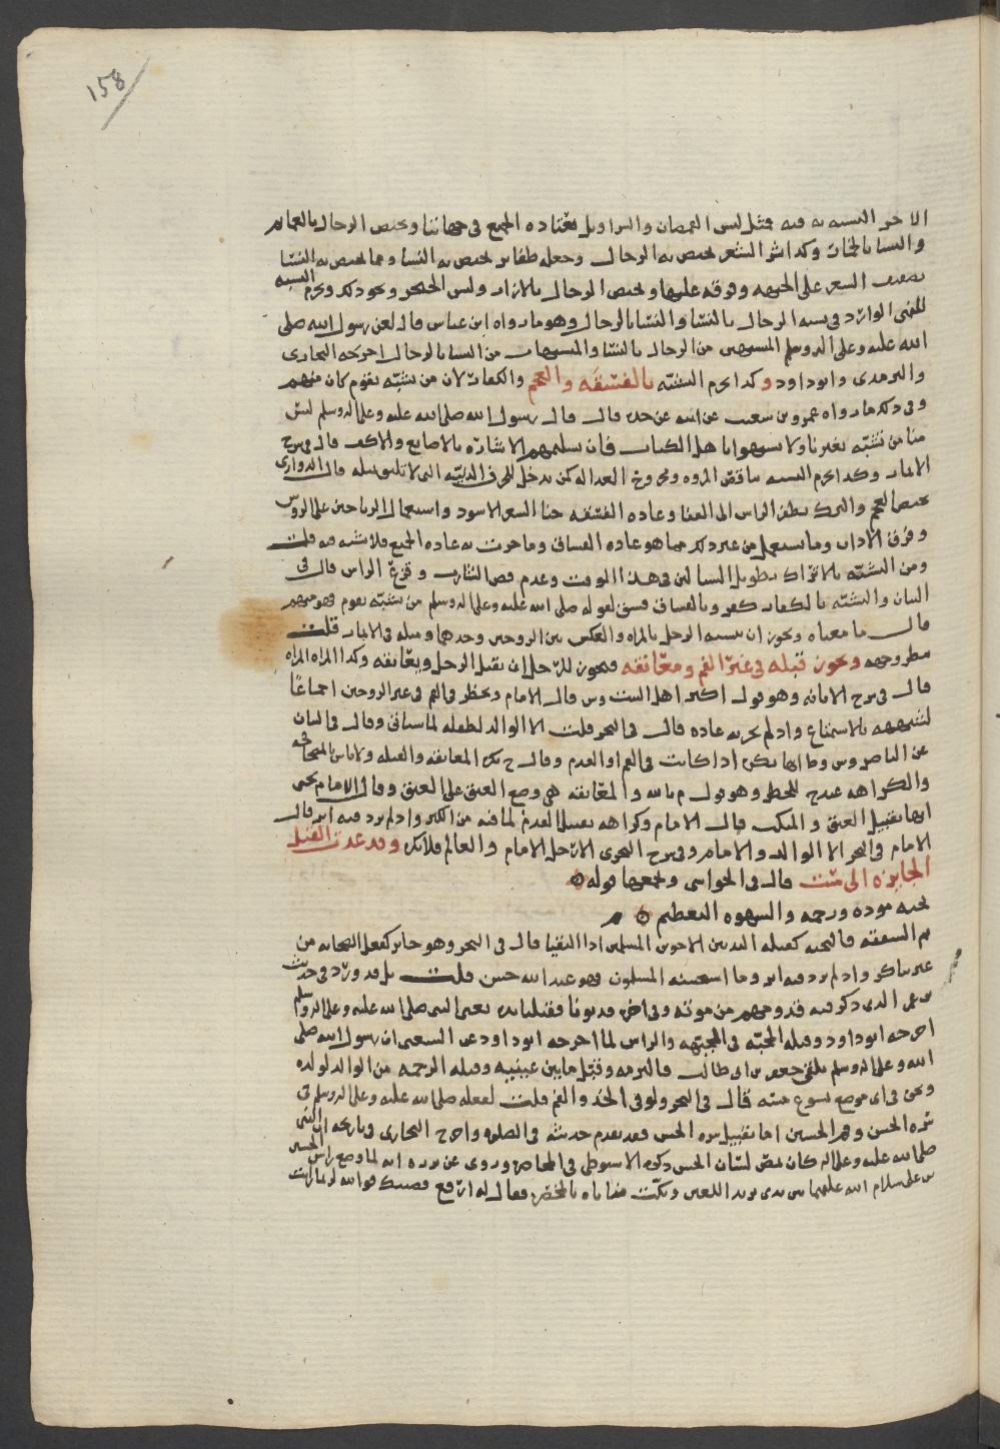 158
الاخر التشبه به فيه فمثل لبس القمصان والسراويل يعتاده الجميع في جهاتنا ويختص الرجال بالعمائم
والنسا وكذا الشعر يختص به الرجال وجعله طفاير يختص به النسا ومما يختص به النسا
السعر على الجبهه وفرقه عليها ويختص الرجال بالازار ولبس الخنجر ونحو ذلك ويحرم التشبه
للنهي الوارد في تشبه الرجال بالنسا والنسا بالرجال وهو ما رواه ابن عباس قال لعن رسول الله صلى
الله عليه وعلى اله وسلم المتشبهين من الرجال بالنسا والمتشبهات من النسا بالرجال اخرجه البخاري
والترمذي وابو داود وكذا يحرم التشبه بالفسقه والعجم والكفار لان من تشبه بقوم كان منهم
وفي ذلك ما رواه عمرو بن شعيب عن ابيه عن جده قال قال رسول الله صلى الله عليه وعلى اله وسلم ليس
منا من تشبه بغيرنا ولا تشبهوا باهل الكتاب فان تسليمهم الاشاره بالاصابع والاكف قال في شرح
الاثمار وكذا يحرم التشبه بناقص المروه ومجروح العداله كمن يدخل للحرف الدنيه التي لا تليق بمثله قال الدواري
يختص العجم والترك الراس الى القفا وعاده الفسقه حنا الشعر الاسود واستعمال الرياحين على الروس
و الاداب وما يستعمل من غير ذلك مما هو عاده الفساق وما جرت به عاده الجميع فلا تشبه فيه قلت
ومن التشبه بالاتراك تطويل السبالين في هذا الوقت وعدم قص الشارب وقزع الراس قال في
البيان والتشبه بالكفار كفر وبالفساق فسق لقوله صلى الله عليه وعلى اله وسلم من تشبه بقوم فهو منهم
قال ما معناه ويجوز ان يتشبه الرجل بالمراه والعكس بين الزوجين وحدهما ومثله في الاثمار قلت
ويجوز قبله في غير الفم ومعانقه فيجوز للرجل ان يقبل الرجل ويعانقه وكذا المراه المراه
قال في شرح الابانه وهو قول اكثر اهل البيت وش قال الامام ويحظر في الفم في غير الزوجين اجماعا
لشبهه بالاستمتاع واذ لم يجر به عاده قال في البحر قلت الا الوالد لطفله لما سياتي وقال في البيان
عن الناصر وش وط انها تكره اذا كانت في الفم او القدم وقال ح تكره المعانقه والقبله ولا باس بالمصافحه
والكراهه عند ح للحظر وهو قول م بالله والمعانقه هي وضع العنق على العنق وقال الامام يحيى
انها تقبيل العنق والمنكب قال الامام وكراهه تقبيل القدم لما فيه من الكبر واذ لم يرد فيه اثر قال
الامام في البحر الا الوالد والامام وفي شرح البحري الا رجل الامام والعالم فلا تكره وقد عدت القبل
الجايزه الى ست قال في الحواشي ويجمعها قوله
تحيه موده ورحمه والشهوه التعظيم
ثم الشفقه فالتحيه كقبله اليد بين الاخوين المسلمين اذا التقيا قال في البحر وهو جايز كفعل الصحابه من
غير تناكر واذ لم يرد فيه اثر وما استحسنه المسلمون فهو عند الله حسن قلت بل قد ورد في حديث
بن عمر الذي ذكر فيه قدومهم من موته وفي اخره فدنونا فقبلنا يده يعني النبي صلى الله عليه وعلى اله وسلم
اخرجه ابو داود وقبله المحبه في الجبهه والراس لما اخرجه ابو داود عن الشعبي ان رسول الله صلى
الله وعلى اله وسلم تلقى جعفر بن ابي طالب فالتزمه وقبل ما بين عينيه وقبله الرحمه من الوالد لولده
ونحن في اي موضع يسوغ منه قال في البحر ولو في الخد والفم قلت لفعله صلى الله عليه وعلى اله وسلم في
سره الحسن وفم الحسين اما تقبيل سره الحسن فقد تقدم حديثه في الصلوه واخرج البخاري في تاريخه ان النبي
صلى الله عليه وعلى اله كان يمص لسان الحسن ذكره الاسيوطي في وروى عن برده انه لما وضع راس الحسين
بن علي سلام الله عليهما بين يدي يزيد اللعين ونكت ثناياه بالمخصره فقال له ارفع قضيبك فوالله لربما رايت